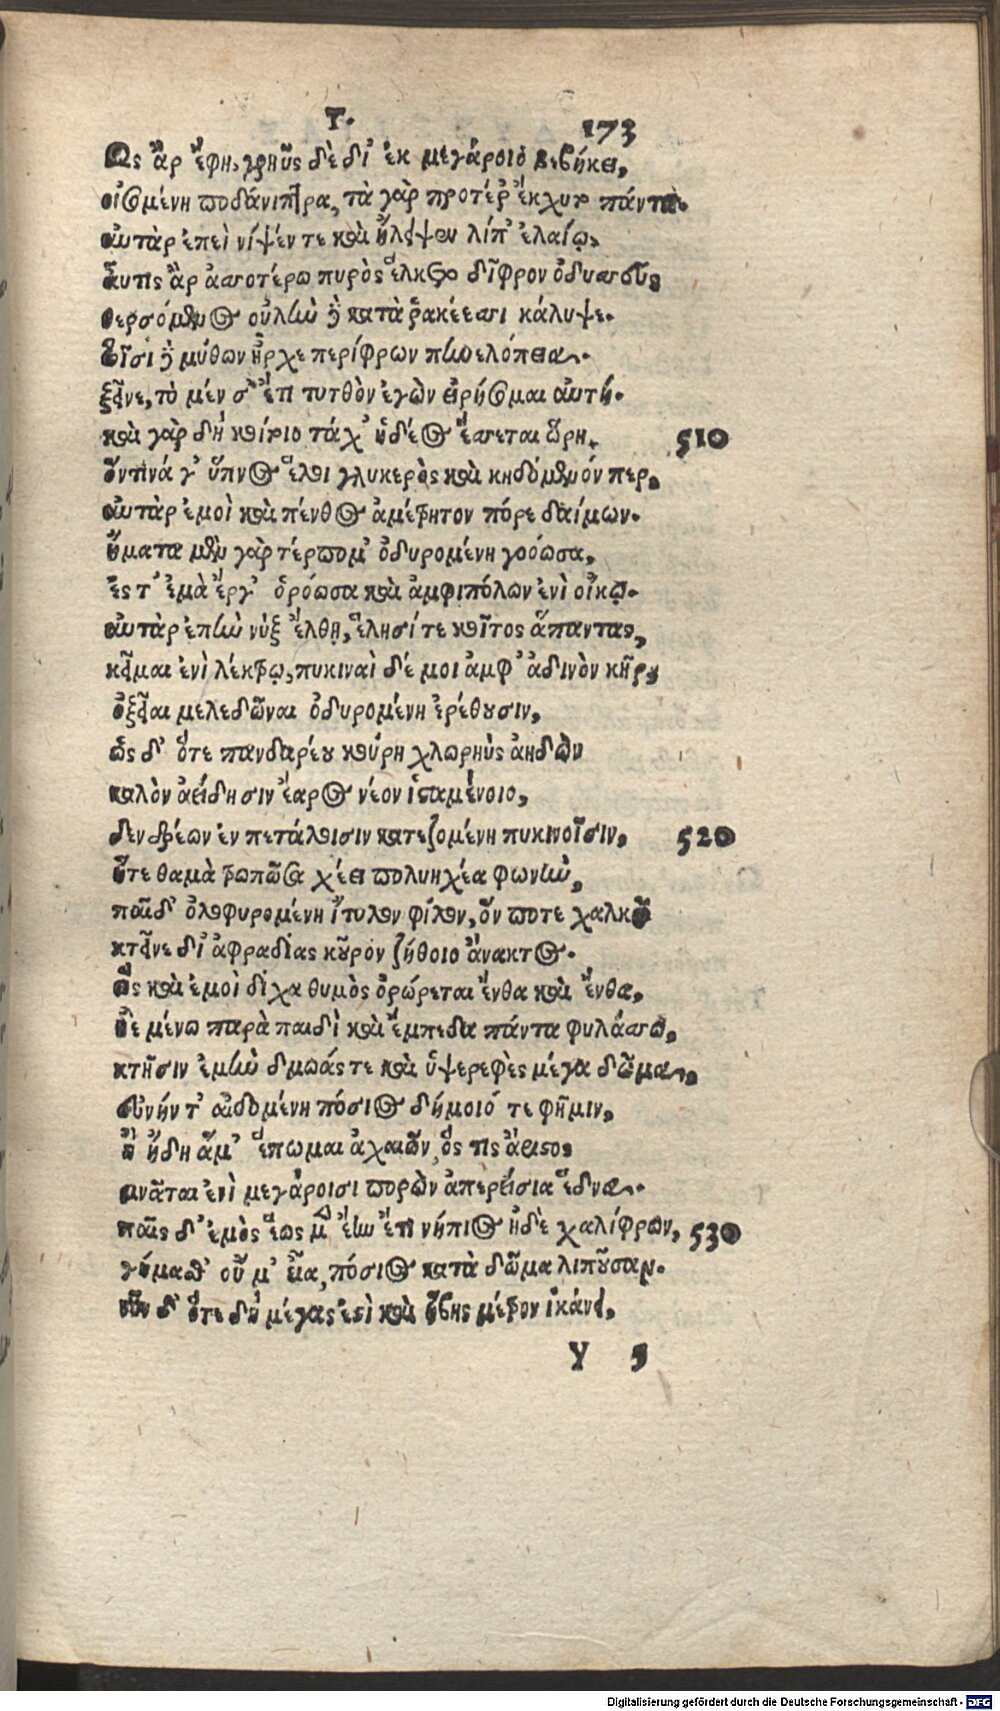 Τ. 173
Ὣς ἂρ ἔφη, γρηῢς δὲ δι' ἐκ μεγάροιο βεβήκει,
οἰσομένη ποδάνιπτρα, τὰ γὰρ προτέρ' ἔκχυτο πάντα.
αὐτὰρ ἐπεὶ νίψέν τε καὶ ἤλειψεν λίπ' ἐλαίῳ,
αὖτις ἂρ ἀσσοτέρω πυρὸς ἕλκετο δίφρον ὀδυσσεὺς
θερσόμενος οὐλὴν δὲ κατὰ ῥακέεσσι κάλυψε.
τοῖσι δὲ μύθων ἦρχε περίφρων πηνελόπεια.
ξεῖνε, τὸ μέν σ' ἔτι τυτθὸν ἐγὼν εἰρήσομαι αὐτή.
καὶ γὰρ δὴ κοίτοιο τάχ' ἡδέος ἔσσεται ὥρη, 510
ὅντινά γ' ὕπνος ἕλοι γλυκερὸς καὶ κηδόμενόν περ,
αὐτὰρ ἐμοὶ καὶ πένθος ἀμέτρητον πόρε δαίμων.
ἤματα μὲν γὰρ τέρπομ' ὀδυρομένη γοόωσα,
ἔς τ' ἐμὰ ἔργ' ὁρόωσα καὶ ἀμφιπόλων ἐνὶ οἴκῳ.
αὐτὰρ ἐπὴν νὺξ ἔλθῃ, ἕλησί τε κοῖτος ἅπαντας,
κεῖμαι ἐνὶ λέκτρῳ, πυκιναὶ δέ μοι ἀμφ' ἀδινὸν κῆρ,
ὀξεῖαι μελεδῶναι ὀδυρομένη ἐρέθουσιν,
ὡς δ' ὅτε πανδαρέου κούρη χλωρηῒς ἀηδὼν
καλὸν ἀείδησιν ἔαρος νέον ἱσταμένοιο,
δενδρέων ἐν πετάλοισιν κατεζομένη πυκινοῖσιν, 520
ἥτε θαμὰ τρωπῶσα χέει πολυηχέα φωνὴν,
παῖδ' ὀλοφυρομένη ἴτυλον φίλον, ὅν ποτε χαλκῷ
κτεῖνε δι' ἀφραδίας κοῦρον ζήθοιο ἄνακτος.
Ὣς καὶ ἐμοὶ δίχα θυμὸς ὀρώρεται ἔνθα καὶ ἔνθα,
ἠὲ μένω παρὰ παιδὶ καὶ ἔμπεδα πάντα φυλάσσω,
κτῆσιν ἐμὴν δμωάς τε καὶ ὑψερεφὲς μέγα δῶμα,
εὐνήν τ' αἰδομένη πόσιος δήμοιό τε φῆμιν,
ἢ ἤδη ἅμ' ἕπωμαι ἀχαιῶν, ὅς τις ἄριστος
μνᾶται ἐνὶ μεγάροισι πορὼν ἀπερείσια ἕδνα.
παῖς δ' ἐμὸς ἕως μὲν ἔην ἔτι νήπιος ἠδὲ χαλίφρων, 530
γήμασθ' οὔ μ' εἴα, πόσιος κατὰ δῶμα λιποῦσαν.
νῦν δ' ὅτε δὴ μέγας ἐστὶ καὶ ἥβης μέτρον ἱκάνει,
Y 5
Digitalisierung gefördert durch die Deutsche Forschungsgemeinschaft - DFG